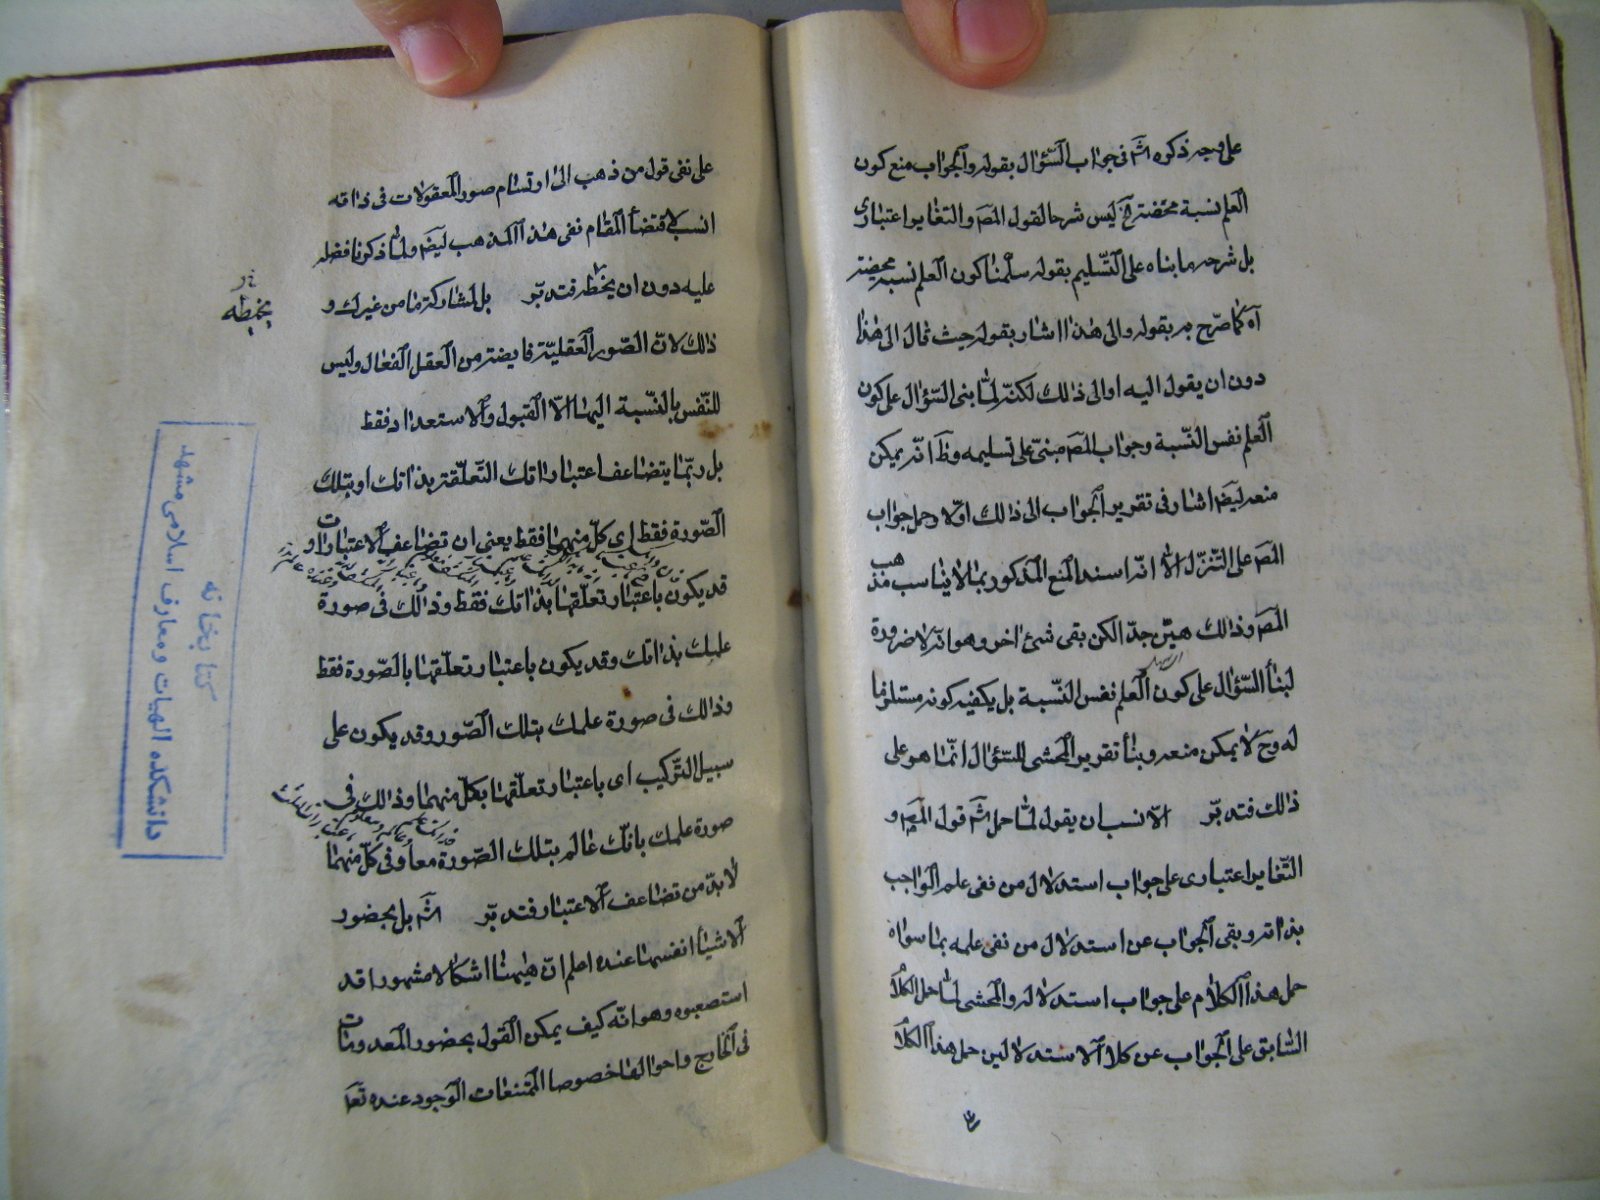 على وجه ذكره الش فى جواب السّؤال بقوله والجواب منع كون
العلم نسبة محضة الخ ليس شرحا لقول المص والتغاير اعتبارى
بل شرحه ما بناه على التّسليم بقوله سلّمنا كون العلم نسبة محضة
آه كما صرّح به بقوله والى هذا اشار بقوله حيث قال الى هذا
دون ان يقول اليه او الى ذالك لكنّه لمّا بنى السّؤال على كون
العلم نفس النّسبة وجواب المص مبنىّ على تسليمه وظ انّه يمكن
منعه ايضا اشار فى تقرير الجواب الى ذالك اوّلا وحمل جواب
المص على التّنزّل الا انّه اسند المنع المذكور بما لا يناسب مذهب
المص وذالك هيّن جدّا لكن بقى شئ اخر وهو انّه لا ضرورة
لبناء السّؤال على كون العلم نفس النّسبة بل يكفيه كونه مستلزما
له وح لا يمكن منعه وبناء تقرير المحشى للسّؤال انّما هو على
ذالك فتدبّر الانسب ان يقول لمّا حمل الش قول المص و
التّغاير اعتبارى على جواب استدلال من نفى علم الواجب
بذاته وبقى الجواب عن استدلال من نفى علمه بما سواه
حمل هذا الكلام على جواب استدلاله والمحشى لمّا حمل الكلا
السّابق على الجواب عن كلا الاستدلالين حمل هذا الكلا
على نفى قول من ذهب الى ارتسام صور المعقولات فى ذاته
انسب لاقتضاء المقام نفى هذا المذهب ايضا ولما ذكرنا فضله
عليه دون ان يخطه فتدبّر بل لمشاركة ما من غيرك و
يخطه
ذالك لانّ الصّور العقليّة فايضة من العقل الفعال وليس
للنّفس بالنّسبة اليها الّا القبول والاستعداد فقط
بل ربّما يتضاعف اعتباراتك المتعلّقة بذاتك او بتلك
الصّورة فقط اى كلّ منهما فقط يعنى ان تضاعف الاعتبارات او
قد يكون باعتبار تعلّقها بذاتك فقط وذالك فى صورة
علمك بذاتك وقد يكون باعتبار تعلّقها بالصّورة فقط
وذالك فى صورة علمك بتلك الصّور وقد يكون على
سبيل التّركيب اى باعتبار تعلّقها بكلّ منهما وذالك فى
صورة علمك بانّك عالم بتلك الصّورة معا وفى كلّ منهما
لا بدّ من تضاعف الاعتبار فتدبّر الش بل بحضور
الاشياء انفسها عنده اعلم انّ هيهنا اشكالا مشهورا قد
استصعبوه وهو انّه كيف يمكن القول بحضور المعدومات
فى الخارج واحوالها خصوصا الممتنعات الوجود عنده تعا
كتابخانه
دانشكده الهيات ومعارف اسلامى مشهد